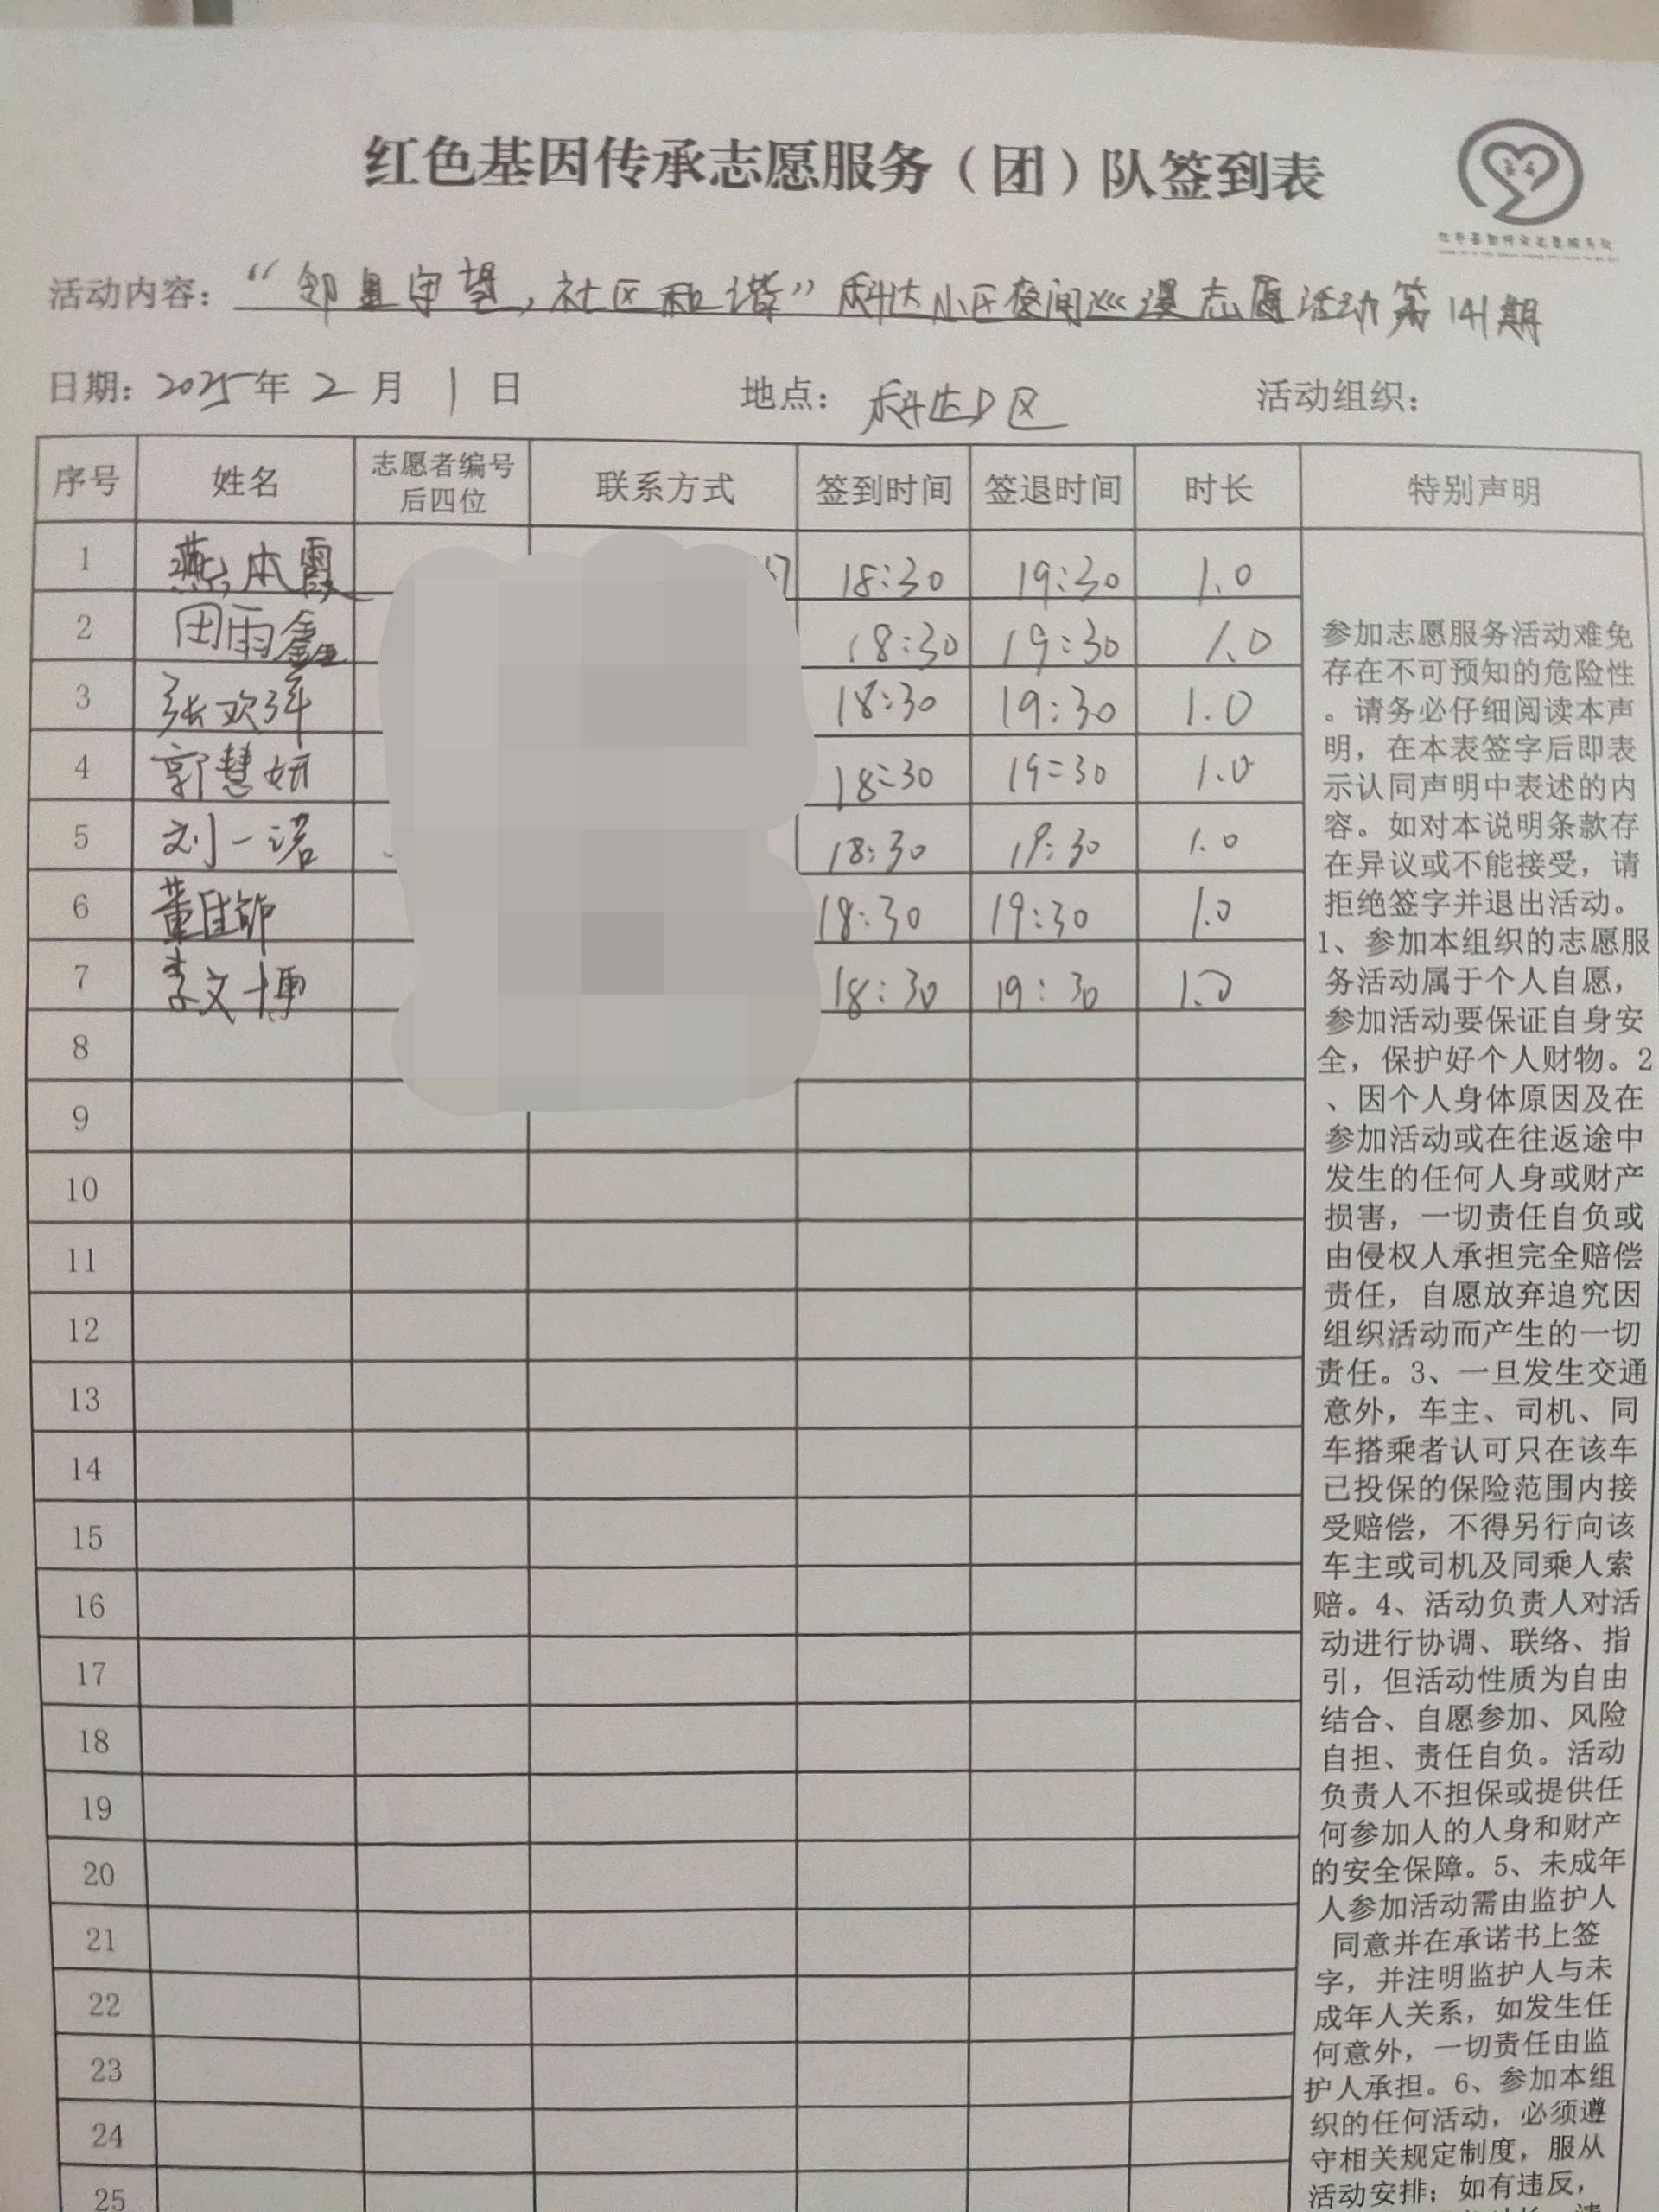 红色基因传承志愿服务（团）队签到表
活动内容：“邻里守望，社区和谐”科达小区夜间巡逻志愿活动第141期
日期：2025年2月1日 地点：科达D区 活动组织：
序号 姓名 志愿者编号后四位 联系方式 签到时间 签退时间 时长 特别声明
1 燕本霞 18:30 19:30 1.0
2 田雨鑫 18:30 19:30 1.0
3 张欢 18:30 19:30 1.0
4 郭慧妍 18:30 19:30 1.0
5 刘一诺 18:30 19:30 1.0
6 董佳 18:30 19:30 1.0
7 李文博 18:30 19:30 1.0
8
9
10
11
12
13
14
15
16
17
18
19
20
21
22
23
24
25
参加志愿服务活动难免
存在不可预知的危险性
。请务必仔细阅读本声
明，在本表签字后即表
示认同声明中表述的内
容。如对本说明条款存
在异议或不能接受，请
拒绝签字并退出活动。
1、参加本组织的志愿服
务活动属于个人自愿，
参加活动要保证自身安
全，保护好个人财物。2
、因个人身体原因及在
参加活动或在往返途中
发生的任何人身或财产
损害，一切责任自负或
由侵权人承担完全赔偿
责任，自愿放弃追究因
组织活动而产生的一切
责任。3、一旦发生交通
意外，车主、司机、同
车搭乘者认可只在该车
已投保的保险范围内接
受赔偿，不得另行向该
车主或司机及同乘人索
赔。4、活动负责人对活
动进行协调、联络、指
引，但活动性质为自由
结合、自愿参加、风险
自担、责任自负。活动
负责人不担保或提供任
何参加人的人身和财产
的安全保障。5、未成年
人参加活动需由监护人
同意并在承诺书上签
字，并注明监护人与未
成年人关系，如发生任
何意外，一切责任由监
护人承担。6、参加本组
织的任何活动，必须遵
守相关规定制度，服从
活动安排；如有违反，